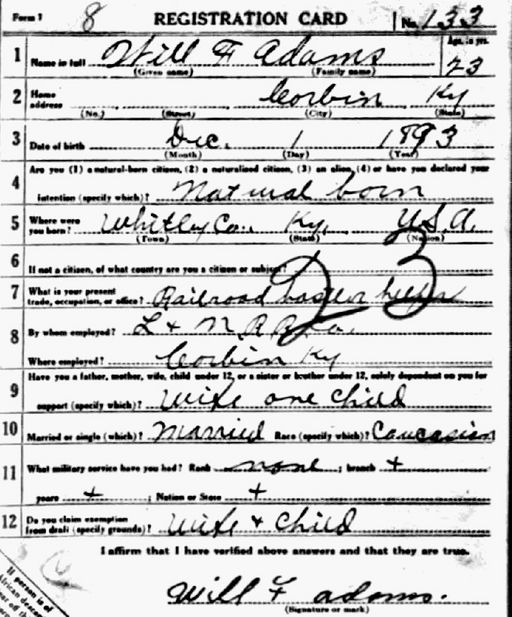 Form 1 8 REGISTRATION CARD No. 133
1 Name in full Will F Adams Age, in yrs. 23
(Given name) (Family name)
2 Home address Corbin Ky
(No.) (Street) (City) (State)
3 Date of birth Dec. 1 1893
(Month) (Day) (Year)
4 Are you (1) a natural-born citizen, (2) a naturalized citizen, (3) an alien, (4) or have you declared your
intention (specify which)? Natural born
5 Where were you born? Whitley Co., Ky, U.S.A.
(Town) (State) (Nation)
6 If not a citizen, of what country are you a citizen or subject?
23
7 What is your present trade, occupation, or office? Railroad hostler helper
8 By whom employed? L & N R R Co.
Where employed? Corbin Ky
9 Have you a father, mother, wife, child under 12, or a sister or brother under 12, solely dependent on you for
support (specify which)? Wife one child
10 Married or single (which)? Married Race (specify which)? Caucasian
11 What military service have you had? Rank none ; branch +
years + ; Nation or State +
12 Do you claim exemption from draft (specify grounds)? Wife + Child
I affirm that I have verified above answers and that they are true.
Will F Adams.
(Signature or mark)
If person is of
African descent,